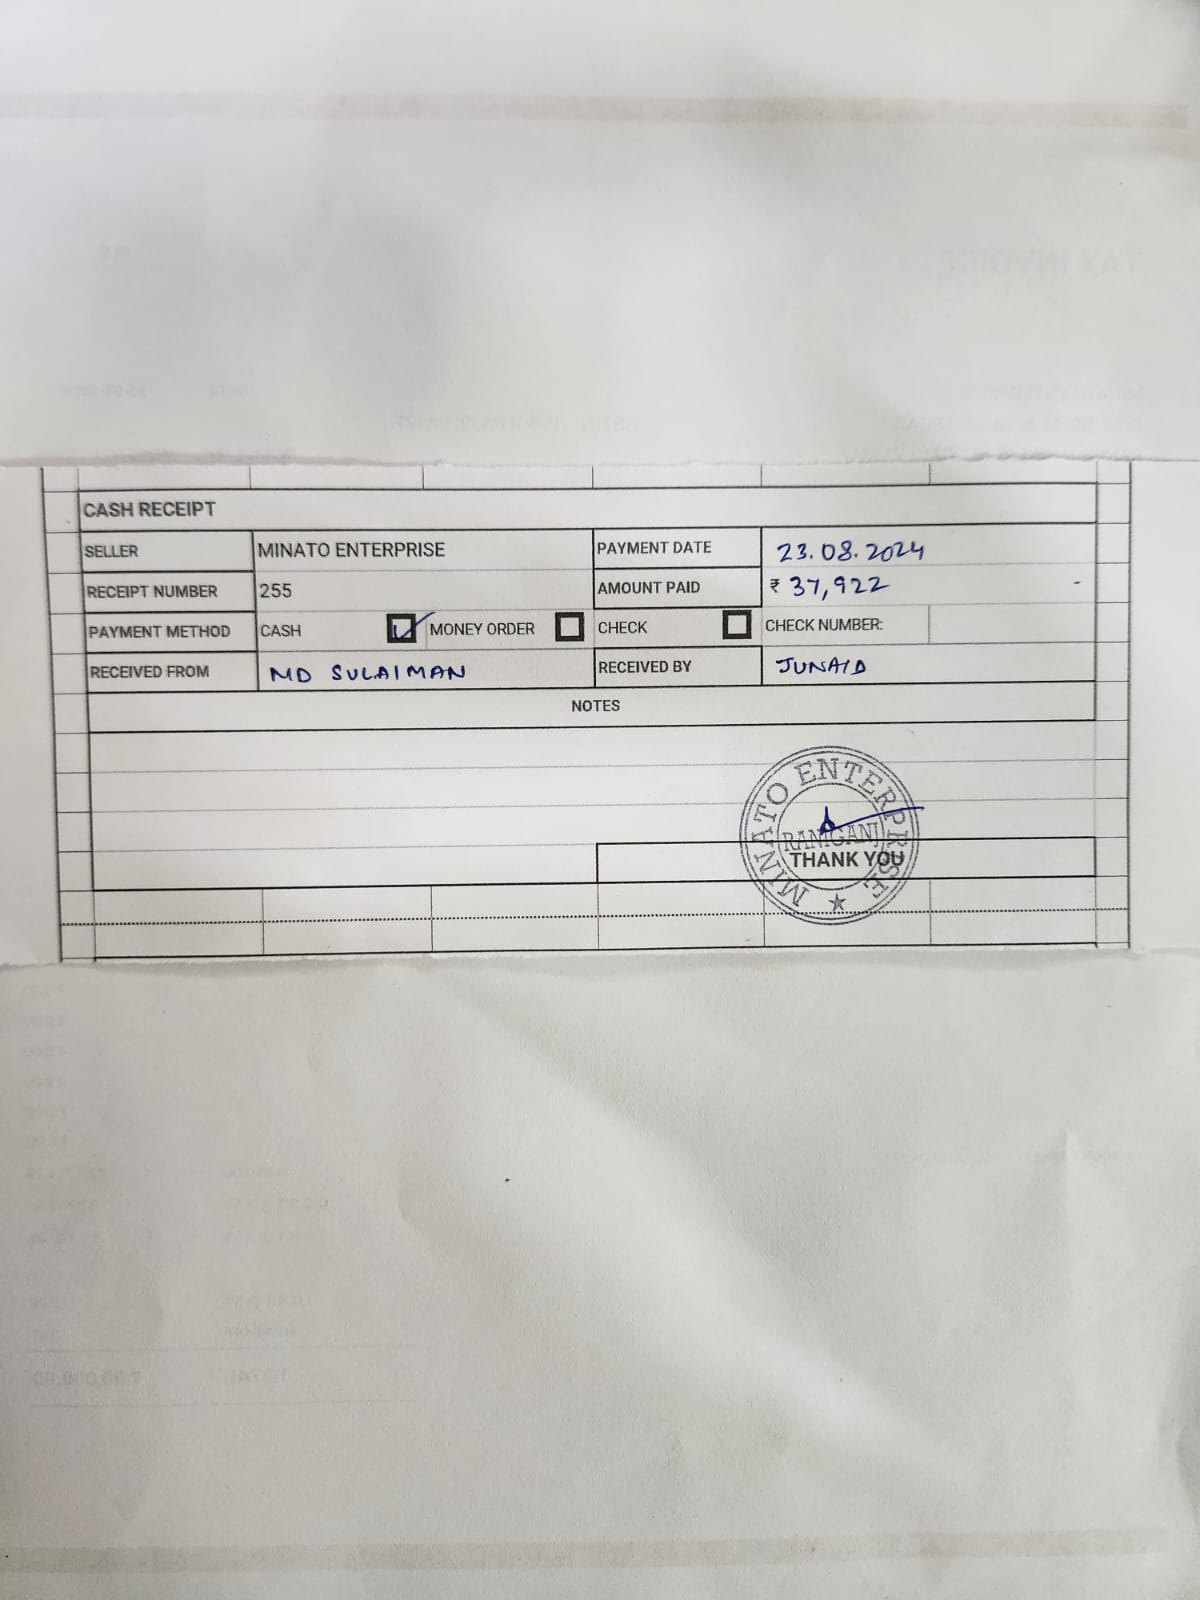 CASH RECEIPT
SELLER MINATO ENTERPRISE PAYMENT DATE 23.08.2024
RECEIPT NUMBER 255 AMOUNT PAID ₹ 37,922 -
PAYMENT METHOD CASH MONEY ORDER CHECK CHECK NUMBER:
RECEIVED FROM MD SULAIMAN RECEIVED BY JUNAID
NOTES
MINATO ENTERPRISE
RANIGANJ
THANK YOU
TAX INVOICE
TOTAL